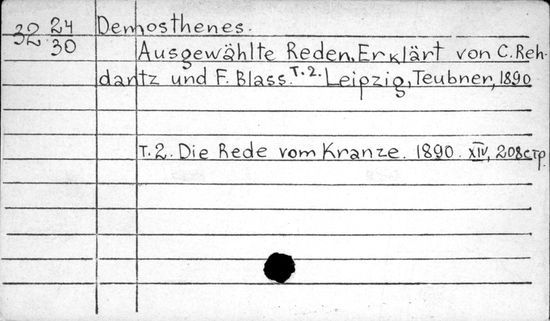 32 24/30 Demosthenes.
Ausgewählte Reden. Erklärt von C. Reh-
dantz und F. Blass. T. 2. Leipzig, Teubner, 1890
T. 2. Die Rede vom Kranze. 1890. XIV, 208 стр.